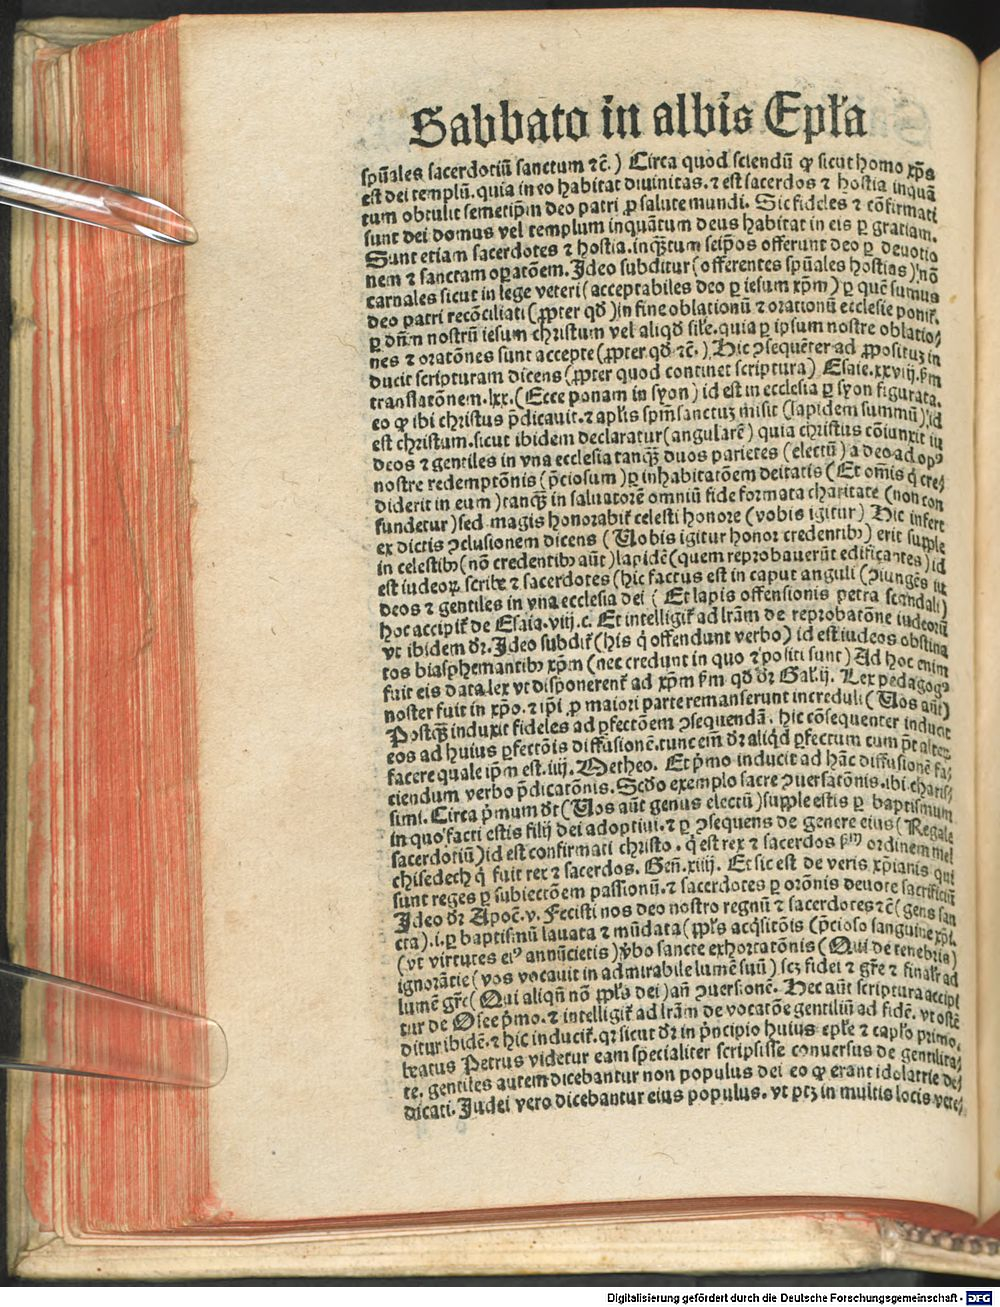 Sabbato in albis Epła
spũales sacerdotiũ sanctum ⁊c̃.) Circa quod sciendũ ꝙ sicut homo xp̃s
est dei templũ. quia in eo habitat diuinitas. ⁊ est sacerdos ⁊ hostia inquã
tum obtulit semetip̃m deo patri ꝓ salute mundi. Sic fideles ⁊ cõfirmati
sunt dei domus vel templum inquãtum deus habitat in eis ꝑ gratiam.
Sunt etiam sacerdotes ⁊ hostia. inqͣ̃tum seip̃os offerunt deo ꝑ deuotio
nem ⁊ sanctam oꝑatõem. Ideo subditur (offerentes spũales hostias) nõ
carnales sicut in lege veteri (acceptabiles deo ꝑ iesum xp̃m) ꝑ quẽ sumus
deo patri recõciliati (ꝓpter qð) in fine oblationũ ⁊ orationũ ecclesie ponit̃.
ꝑ dñm nostrũ iesum christum vel aliqð sil̃e. quia ꝑ ipsum nostre oblatio/
nes ⁊ oratões sunt accepte (ꝓpter qð ⁊c̃.) Hic ↄsequẽter ad ꝓpositũ in
ducit scripturam dicens (ꝓpter quod continet scriptura) Esaie. xxviij. ẜm
translatõnem. lxx. (Ecce ponam in syon) id est in ecclesia ꝑ syon figurata.
eo ꝙ ibi christus p̃dicauit. ⁊ apl̃is spm̃ sanctuꝫ misit (lapidem summũ) id
est christum. sicut ibidem declaratur (angularẽ) quia christus cõiunxit iu
deos ⁊ gentiles in vna ecclesia tanqͣ̃ duos parietes (electũ) a deo ad opꝰ
nostre redemptõnis (p̃ciosum) ꝑ inhabitatõem deitatis (Et om̃is q̇ cre/
diderit in eum) tanqͣ̃ in saluatorẽ omniũ fide formata charitate (non con
fundetur) sed magis honorabit̃ celesti honore (vobis igitur) Hic infert
ex dictis ↄclusionem dicens (Uobis igitur honor credentibꝰ) erit supple
in celestibꝰ (nõ credentibꝰ aũt) lapidẽ (quem reprobauerũt edificantes) id
est iudeoꝝ scribe ⁊ sacerdotes (hic factus est in caput anguli (ↄiungẽs iu
deos ⁊ gentiles in vna ecclesia dei (Et lapis offensionis petra scandali)
hoc accipit̃ de Esaia. viij. c. Et intelligit̃ ad l̃ram de reprobatõne iudeorũ
vt ibidem dr̃. Ideo subdit̃ (his q̇ offendunt verbo) id est iudeos obstina
tos blasphemantibꝰ xp̃m (nec credunt in quo ⁊ positi sunt) Ad hoc enim
fuit eis data lex vt disponerent̃ ad xp̃m ẜm qð dr̃ Gal̃. ij. Lex pedagogꝰ
noster fuit in xp̃o. ⁊ ip̃i ꝓ maiori parte remanserunt increduli (Uos aũt)
Postqͣ̃ induxit fideles ad ꝑfectõem ↄsequendã. hic cõsequenter inducit
eos ad huius ꝑfectõis diffusionẽ. tunc eim̃ dr̃ aliqͥd ꝑfectum cum põt alterꝫ
facere quale ip̃m est. iiij. Metheo. Et pͥmo inducit ad hãc diffusionẽ fa/
ciendum verbo p̃dicatõnis. Scðo exemplo sacre ↄuersatõnis. ibi charis/
simi. Circa pͥmum dr̃ (Uos aũt genus electũ) supple estis ꝑ baptismum
in quo facti estis filij dei adoptiui. ⁊ ꝑ ↄsequens de genere eius (Regale
sacerdotiũ) id est confirmati christo. q̇ est rex ⁊ sacerdos ẜm ordinem mel
chisedech q̇ fuit rex ⁊ sacerdos. Geñ. xiiij. Et sic est de veris xp̃ianis qui
sunt reges ꝑ subiectõem passionũ. ⁊ sacerdotes ꝑ orõnis deuote sacrificiũ
Ideo dr̃ Apoc̃. v. Fecisti nos deo nostro regnũ ⁊ sacerdotes ⁊c̃ (gens san
cta). i. ꝑ baptismũ lauata ⁊ mũdata (ꝓpl̃s acqͥsitõis (p̃cioso sanguine xp̃i.
(vt virtutes eiꝰ annũcietis) v̾bo sancte exhortatõnis (Qui de tenebris)
ignorãtie (vos vocauit in admirabile lumẽ suũ) scꝫ fidei ⁊ gr̃e ⁊ final̃r ad
lumẽ gr̃e (Qui aliqñ nõ ꝓpl̃s dei) añ ↄuersionẽ. Hec aũt scriptura accipi
tur de Osee pͥmo. ⁊ intelligit̃ ad l̃ram de vocatõe gentiliũ ad fidẽ. vt ostẽ
ditur ibidẽ. ⁊ hic inducit̃. qꝛ sicut dr̃ in pͥncipio huius epl̃e ⁊ capl̃o primo.
beatus Petrus videtur eam specialiter scripsisse conuersus de gentilita/
te. gentiles autem dicebantur non populus dei eo ꝙ erant idolatrie de/
dicati. Judei vero dicebantur eius populus. vt ptꝫ in multis locis vete/
Digitalisierung gefördert durch die Deutsche Forschungsgemeinschaft - DFG